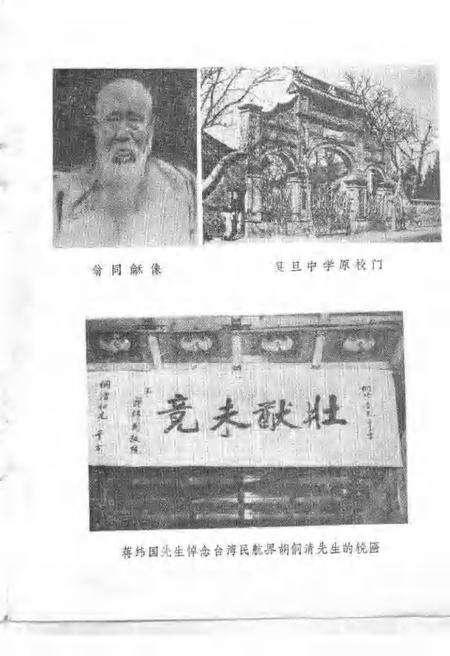 翁同龢像
复旦中学原校门
壮猷未竟
蒋纬国先生悼念台湾民航界胡侗清先生的挽匾